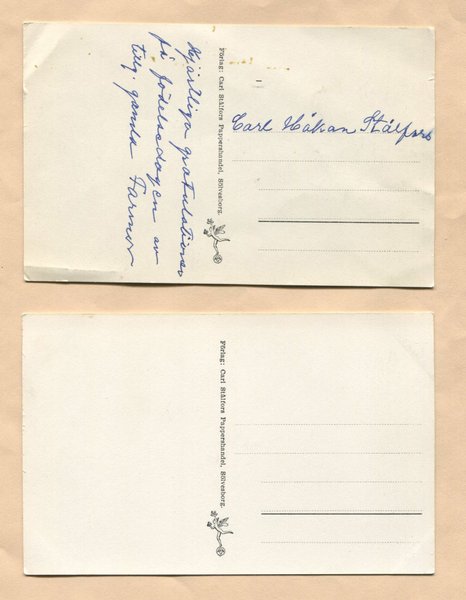 Hjärtliga gratulationer
på födelsedagen av
Farmor
Förlag: Carl Stålfors Pappershandel, Sölvesborg.
Carl Håkan Stålfors
Förlag: Carl Stålfors Pappershandel, Sölvesborg.